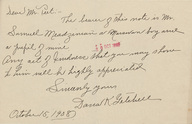 Dear Mr. Peet:
The bearer of this note is Mr.
Samuel Mazganian a Marsovan boy and
a pupil of mine
Any act of kindness that you may show
to him will be highly appreciated
Sincerely yours
Dana K. Getchell
October 15, 1908